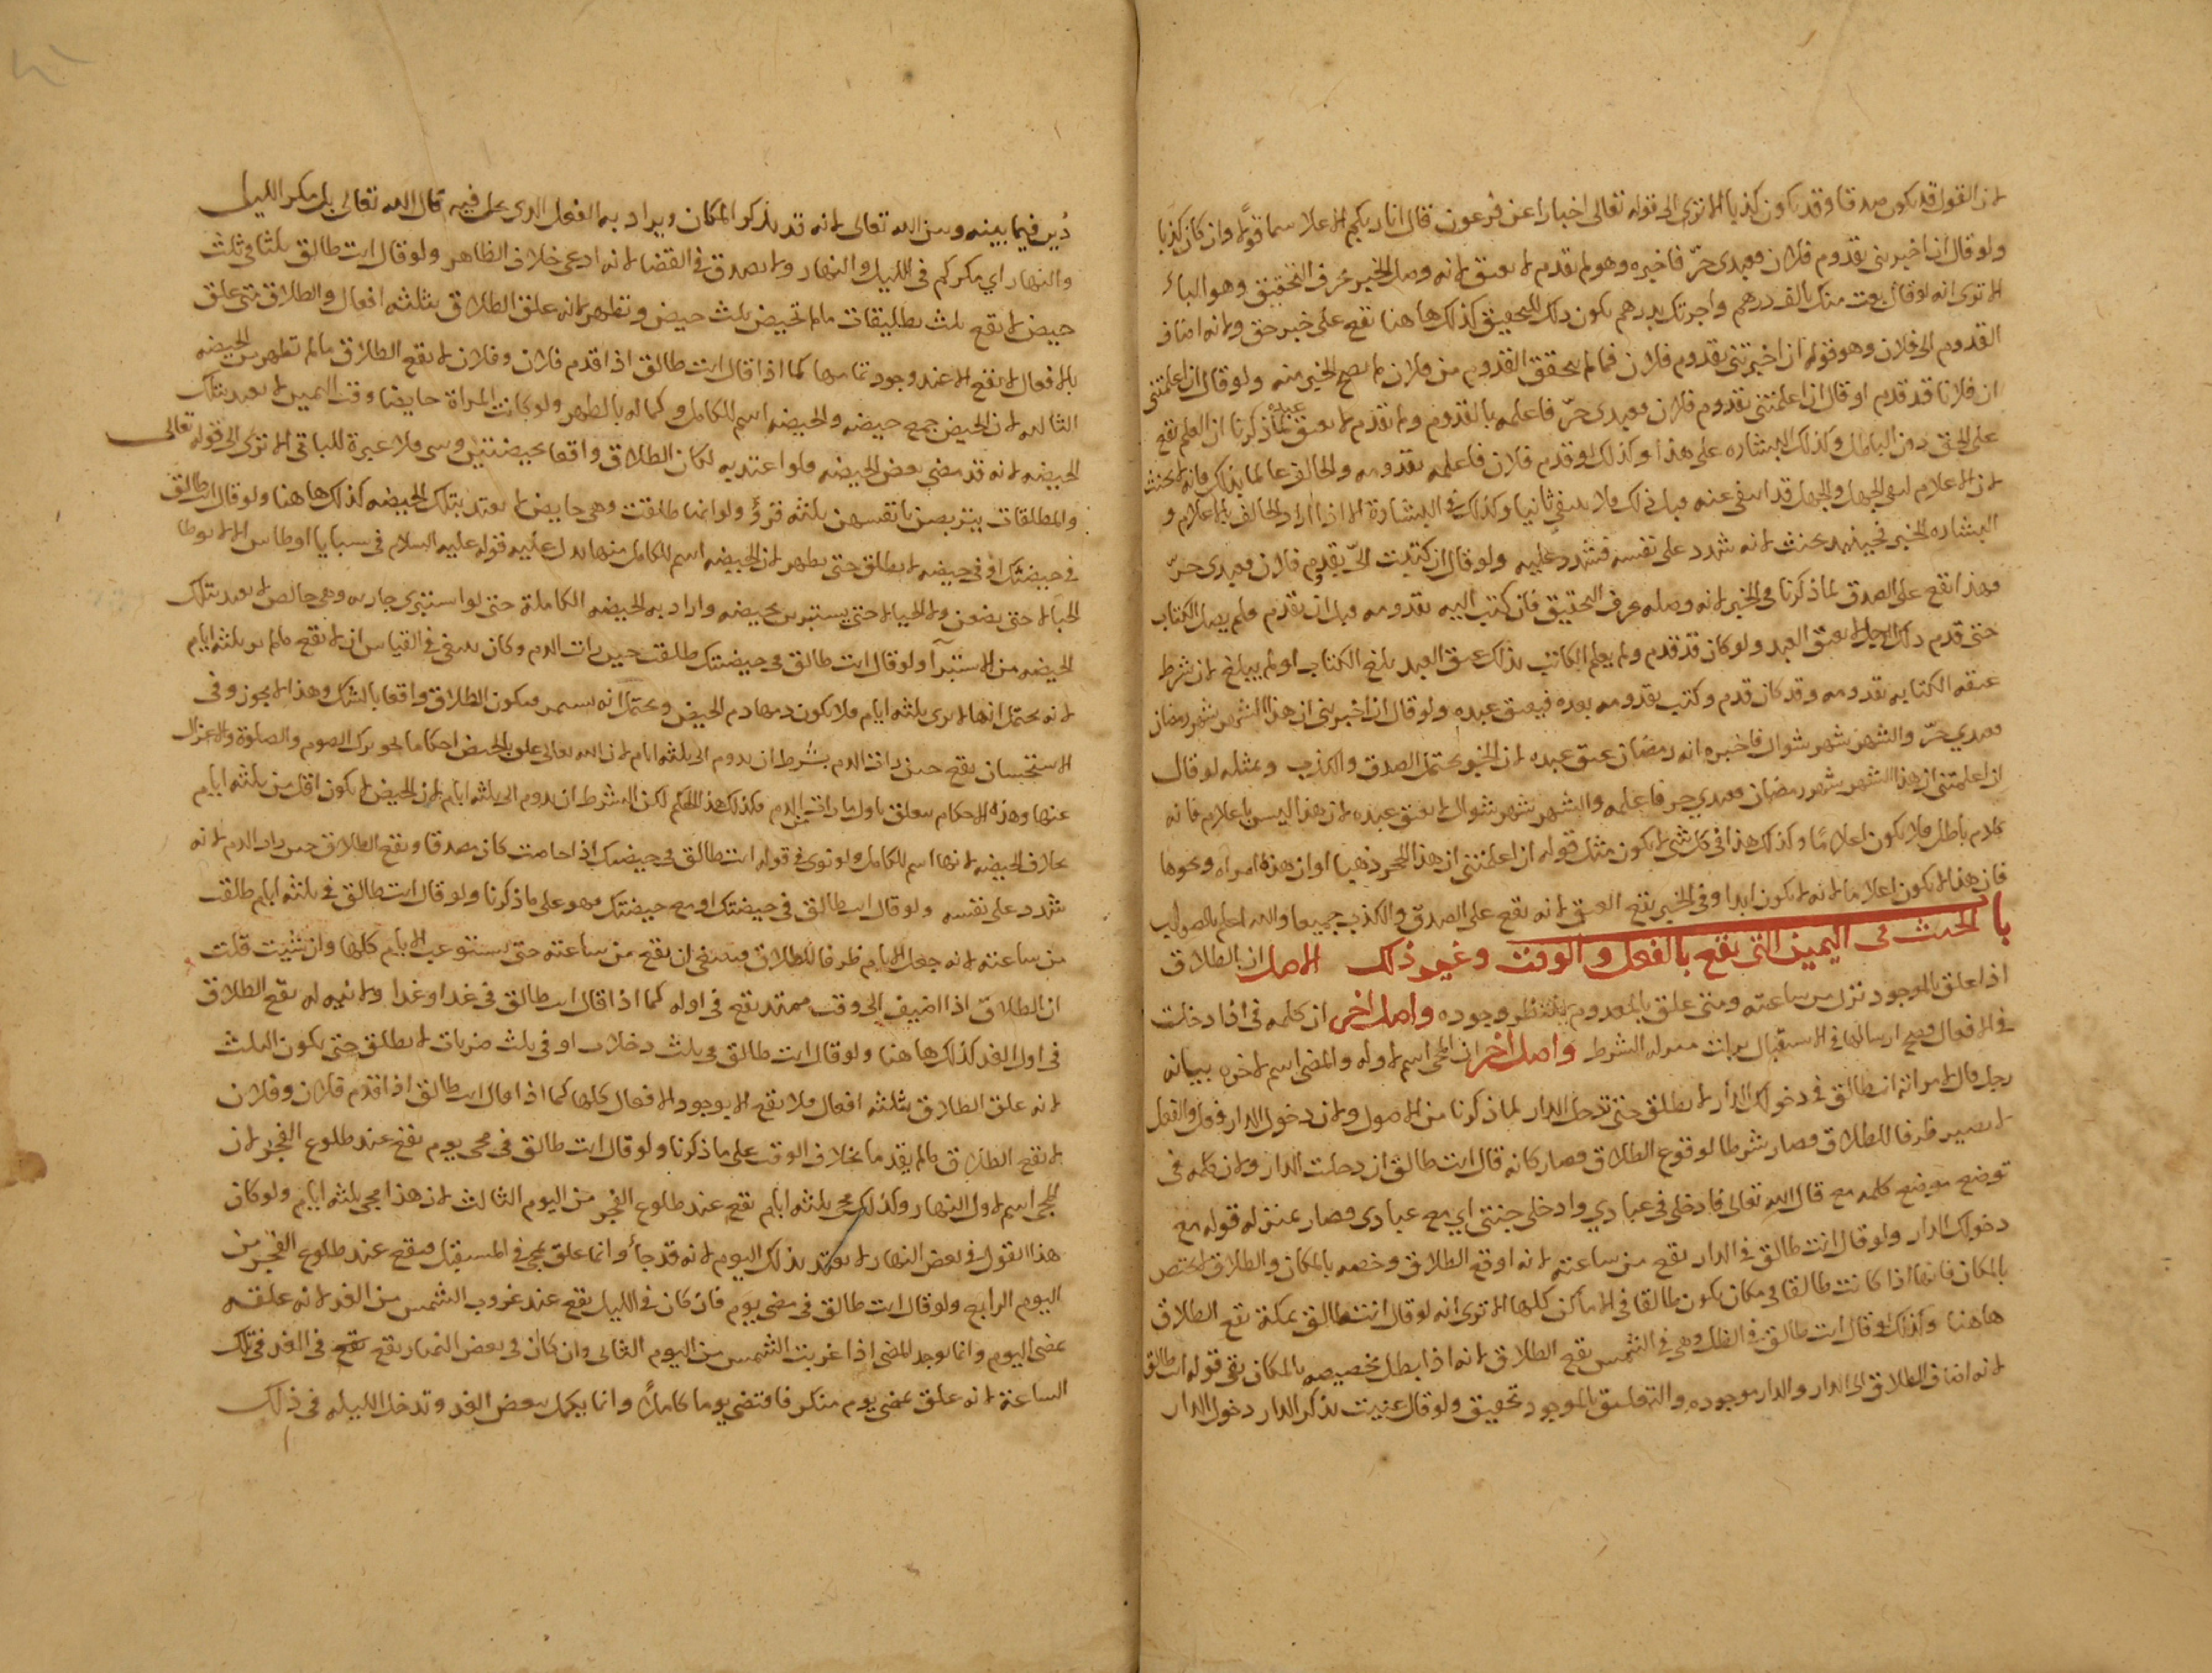 لان القول قد يكون صدقا وقد يكون كذبا الا ترى الى قوله تعالى اخبارا عن فرعون قال انا ربكم الاعلى سماه قولا وان كان كذبا
ولو قال ان اخبرتني بقدوم فلان فعبدي حرّ فاخبره وهو لم يقدم لا يعتق لانه وصل الخبر بحرف التحقيق وهو الباء
الا ترى انه لو قال بعت منك بالف درهم واجرتك بدرهم يكون ذلك للتحقيق كذلك هاهنا تقع على خبر حق ولانه اضاف
القدوم الى فلان وهو قوله ان اخبرتني بقدوم فلان فما لم يتحقق القدوم من فلان لم يصح الخبر منه ولو قال ان اعلمتني
ان فلانا قد قدم او قال ان اعلمتني بقدوم فلان فعبدي حرّ فاعلمه بالقدوم ولم يقدم لا يعتق عبده لما ذكرنا ان العلم يقع
على الحق دون الباطل وكذلك البشاره على هذا وكذلك لو قدم فلان فاعلمه بقدومه والحالف عالما بذلك فانه لا يحنث
لان الاعلام لنفي الجهل والجهل قد انتفى عنه قبل ذلك فلا ينتفي ثانيا وكذلك في البشارة الا اذا اراد الحالف بالاعلام و
البشاره الخبر فحينئذ يحنث لانه شدد على نفسه فشدد عليه ولو قال ان كتبت اليّ بقدوم فلان فعبدي حرّ
فهذا تقع على الصدق لما ذكرنا في الخبر لانه وصله بحرف التحقيق فان كتب اليه بقدومه قبل ان يقدم فلم يصل الكتاب
حتى قدم ذلك الرجل لا يعتق العبد ولو كان قد قدم ولم يعلم الكاتب بذلك عتق العبد بلغ الكتاب او لم يبلغ لان شرط
عتقه الكتابه بقدومه وقد كان قدم وكتب بقدومه بعده فيعتق عبده ولو قال ان اخبرتني ان هذا الشهر شهر رمضان
فعبدي حرّ والشهر شهر شوال فاخبره انه رمضان عتق عبده لان الخبر يحتمل الصدق والكذب وبمثله لو قال
ان اعلمتني ان هذا الشهر شهر رمضان فعبدي حر فاعلمه والشهر شهر شوال لا يعتق عبده لان هذا ليس باعلام فانه
كلام باطل فلا يكون اعلامًا وكذلك هذا في كل شي لا يكون مثل قوله ان اعلمتني ان هذا الحجر ذهبا او ان هذه امراه ونحوها
فان هذا لا يكون اعلاما لانه لا يكون ابدا وفي الخبر يقع العتق لانه تقع على الصدق والكذب جميعا والله اعلم بالصواب
باب الحنث في اليمين التي تقع بالفعل والوقت وغير ذلك الاصل ان الطلاق
اذا علق بالموجود نزل من ساعته ومتى علق بالمعدوم ينتظر وجوده واصل اخر ان كلمه في اذا دخلت
في الافعال وصح ارسالها في الاستقبال نزلت منزله الشرط واصل اخر ان المجي اسم لاوله والمضي اسم لاخره بيانه
رجل قال لامراته انت طالق في دخولك الدار لا تطلق حتى تدخل الدار لما ذكرنا من الاصول ولان دخول الدار فعل والفعل
لا يصير ظرفا للطلاق فصار شرطا لوقوع الطلاق فصار كانه قال انت طالق ان دخلت الدار ولان كلمه في
توضع موضع كلمه مع قال الله تعالى فادخلي في عبادي وادخلي جنتي اي مع عبادي فصار بمنزله قوله مع
دخولك الدار ولو قال انت طالق في الدار تقع من ساعته لانه اوقع الطلاق وخصه بالمكان والطلاق لا يختص
بالمكان فانها اذا كانت طالقا في مكان يكون طالقا في الاماكن كلها الا ترى انه لو قال انت طالق بمكة تقع الطلاق
هاهنا وكذلك لو قال انت طالق في الظل وهي في الشمس تقع الطلاق لانه اذا بطل تخصيصه بالمكان بقي قوله انت طالق
لانه اضاف الطلاق الى الدار والدار موجوده والتعليق بالموجود تحقيق ولو قال عنيت بذكر الدار دخول الدار
دُين فيما بينه وبين الله تعالى لانه قد يذكر المكان ويراد به الفعل الذي يحل فيه قال الله تعالى بل مكر الليل
والنهار اي مكركم في الليل والنهار ولا يصدق في القضا لانه ادعى خلاف الظاهر ولو قال انت طالق ثلثا في ثلث
حيض لا يقع ثلث تطليقات ما لم تحيض ثلث حيض وتطهر لانه علق الطلاق بثلثه افعال والطلاق متى علق
بالافعال لا يقع الا عند وجود تمامها كما اذا قال انت طالق اذا قدم فلان وفلان لا يقع الطلاق ما لم تطهر من الحيضه
الثالثه لان الحيض جمع حيضه والحيضه اسم للكامل وكماله بالطهر ولو كانت المراة حايضا وقت اليمين لا يعتد بتلك
الحيضه لانه قد مضى بعض الحيضه فلو اعتد به لكان الطلاق واقعا بحيضتين وشي فلا عبرة للباقي الا ترى الى قوله تعالى
والمطلقات يتربصن بانفسهن ثلثه قرؤ ولو انها طلقت وهي حايض لا يعتد بتلك الحيضه كذلك هاهنا ولو قال انت طالق
في حيضتك او في حيضه لا تطلق حتى تطهر لان الحيضه اسم للكامل منها بدل عليه قوله عليه السلام في سبايا اوطاس الا لا توطا
الحبالى حتى يضعن ولا الحيالى حتى يستبرين بحيضه واراد به الحيضه الكاملة حتى لو استبرى جاريه وهي حائض لا يعتد بتلك
الحيضه من الاستبرآ ولو قال انت طالق في حيضتك طلقت حين رات الدم وكان ينبغي في القياس ان لا تقع ما لم تر ثلثه ايام
لانه يحتمل انها لا ترى ثلثه ايام فلا يكون دمها دم الحيض ويحتمل انه يستمر فيكون الطلاق واقعا بالشك وهذا لا يجوز وفي
الاستحسان تقع حين رات الدم بشرط ان يدوم الى ثلثه ايام لان الله تعالى علق بالحيض احكاما نحو ترك الصوم والصلوة والاعتزال
عنها وهذه الاحكام تتعلق باول ما رات من الدم فكذلك هذا الحكم لكن بشرط ان يدوم الى ثلثه ايام لان الحيض لا يكون اقل من ثلثه ايام
بخلاف الحيضه لانها اسم للكامل ولو نوى في قوله انت طالق في حيضتك اذا حاضت كان مصدقا ويقع الطلاق حين رات الدم لانه
شدد على نفسه ولو قال انت طالق في حيضتك او مع حيضتك فهو على ما ذكرنا ولو قال انت طالق في ثلثه ايام طلقت
من ساعته لانه جعل الايام ظرفا للطلاق فينبغي ان تقع من ساعته حتى يستوعب الايام كلها وان شيت قلت
ان الطلاق اذا اضيف الى وقت ممتد يقع في اوله كما اذا قال انت طالق في غد او غدا ولا نيه له تقع الطلاق
في اول الغد كذلك هاهنا ولو قال انت طالق في ثلث دخلات او في ثلث ضربات لا تطلق حتى يكون الثلث
لانه علق الطلاق بثلثه افعال فلا تقع الا بوجود الافعال كلها كما اذا قال انت طالق اذا قدم فلان وفلان
لا تقع الطلاق ما لم يقدما بخلاف الوقت على ما ذكرنا ولو قال انت طالق في مجي يوم تقع عند طلوع الفجر لان
المجي اسم لاول النهار وكذلك مجي ثلثه ايام تقع عند طلوع الفجر من اليوم الثالث لان هذا مجي ثلثه ايام ولو كان
هذا القول في بعض النهار لا يعتد بذلك اليوم لانه قد جأ وانما علق بمجي في المستقبل فيقع عند طلوع الفجر من
اليوم الرابع ولو قال انت طالق في مضي يوم فان كان في الليل يقع عند غروب الشمس من الغد لانه علقه
بمضي اليوم وانما يوجد المضي اذا غربت الشمس من اليوم الثاني وان كان في بعض النهار يقع تقع في الغد في تلك
الساعة لانه علق بمضي يوم منكر فاقتضى يوما كاملا وانما يكمل ببعض الغد وتدخل الليله في ذلك